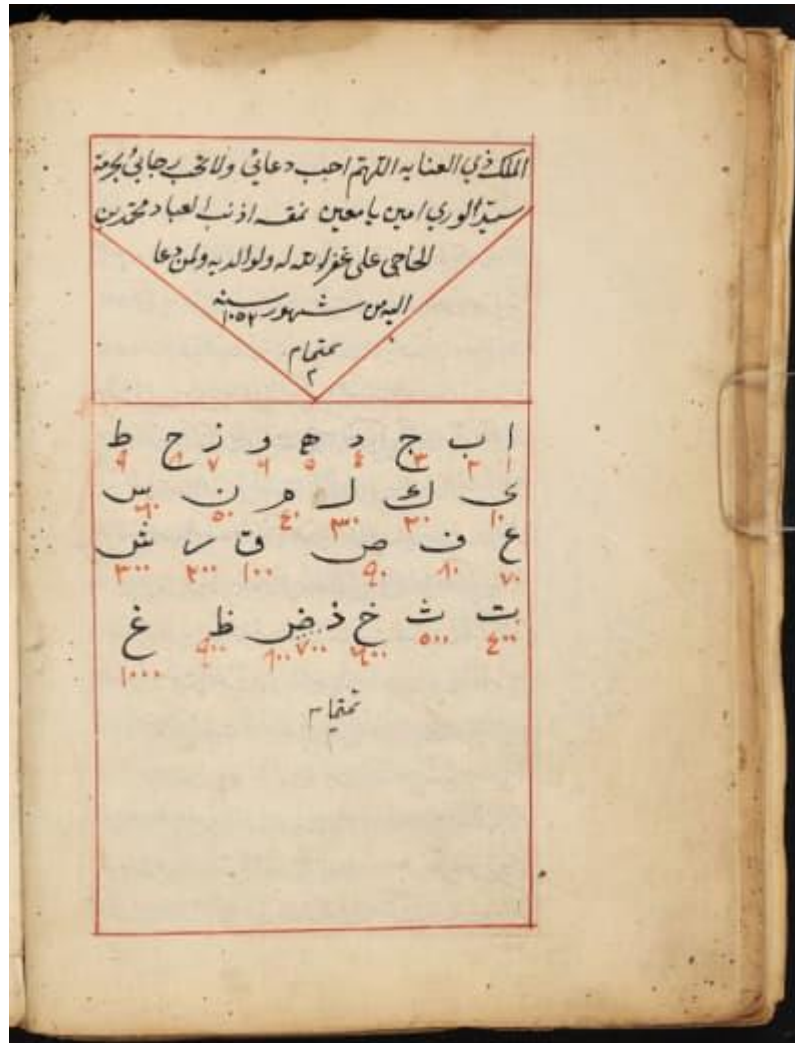 الملك ذي العنايه اللهم اجب دعائي ولا تخب رجائي بحرمة
سيد الوري امين يا معين نمقه اذنب العباد محمد بن
الحاجي علي غفر الله له ولوالديه ولمن دعا
اليه من شهور سنة ١٠٥٢
تمتمام
م
ا ب ج د ه و ز ح ط
١ ٢ ٣ ٤ ٥ ٦ ٧ ٨ ٩
ى ك ل م ن س
١٠ ٢٠ ٣٠ ٤٠ ٥٠ ٦٠
ع ف ص ق ر ش
٧٠ ٨٠ ٩٠ ١٠٠ ٢٠٠ ٣٠٠
ت ث خ ذ ض ظ غ
٤٠٠ ٥٠٠ ٦٠٠ ٧٠٠ ٨٠٠ ٩٠٠ ١٠٠٠
تمتمام